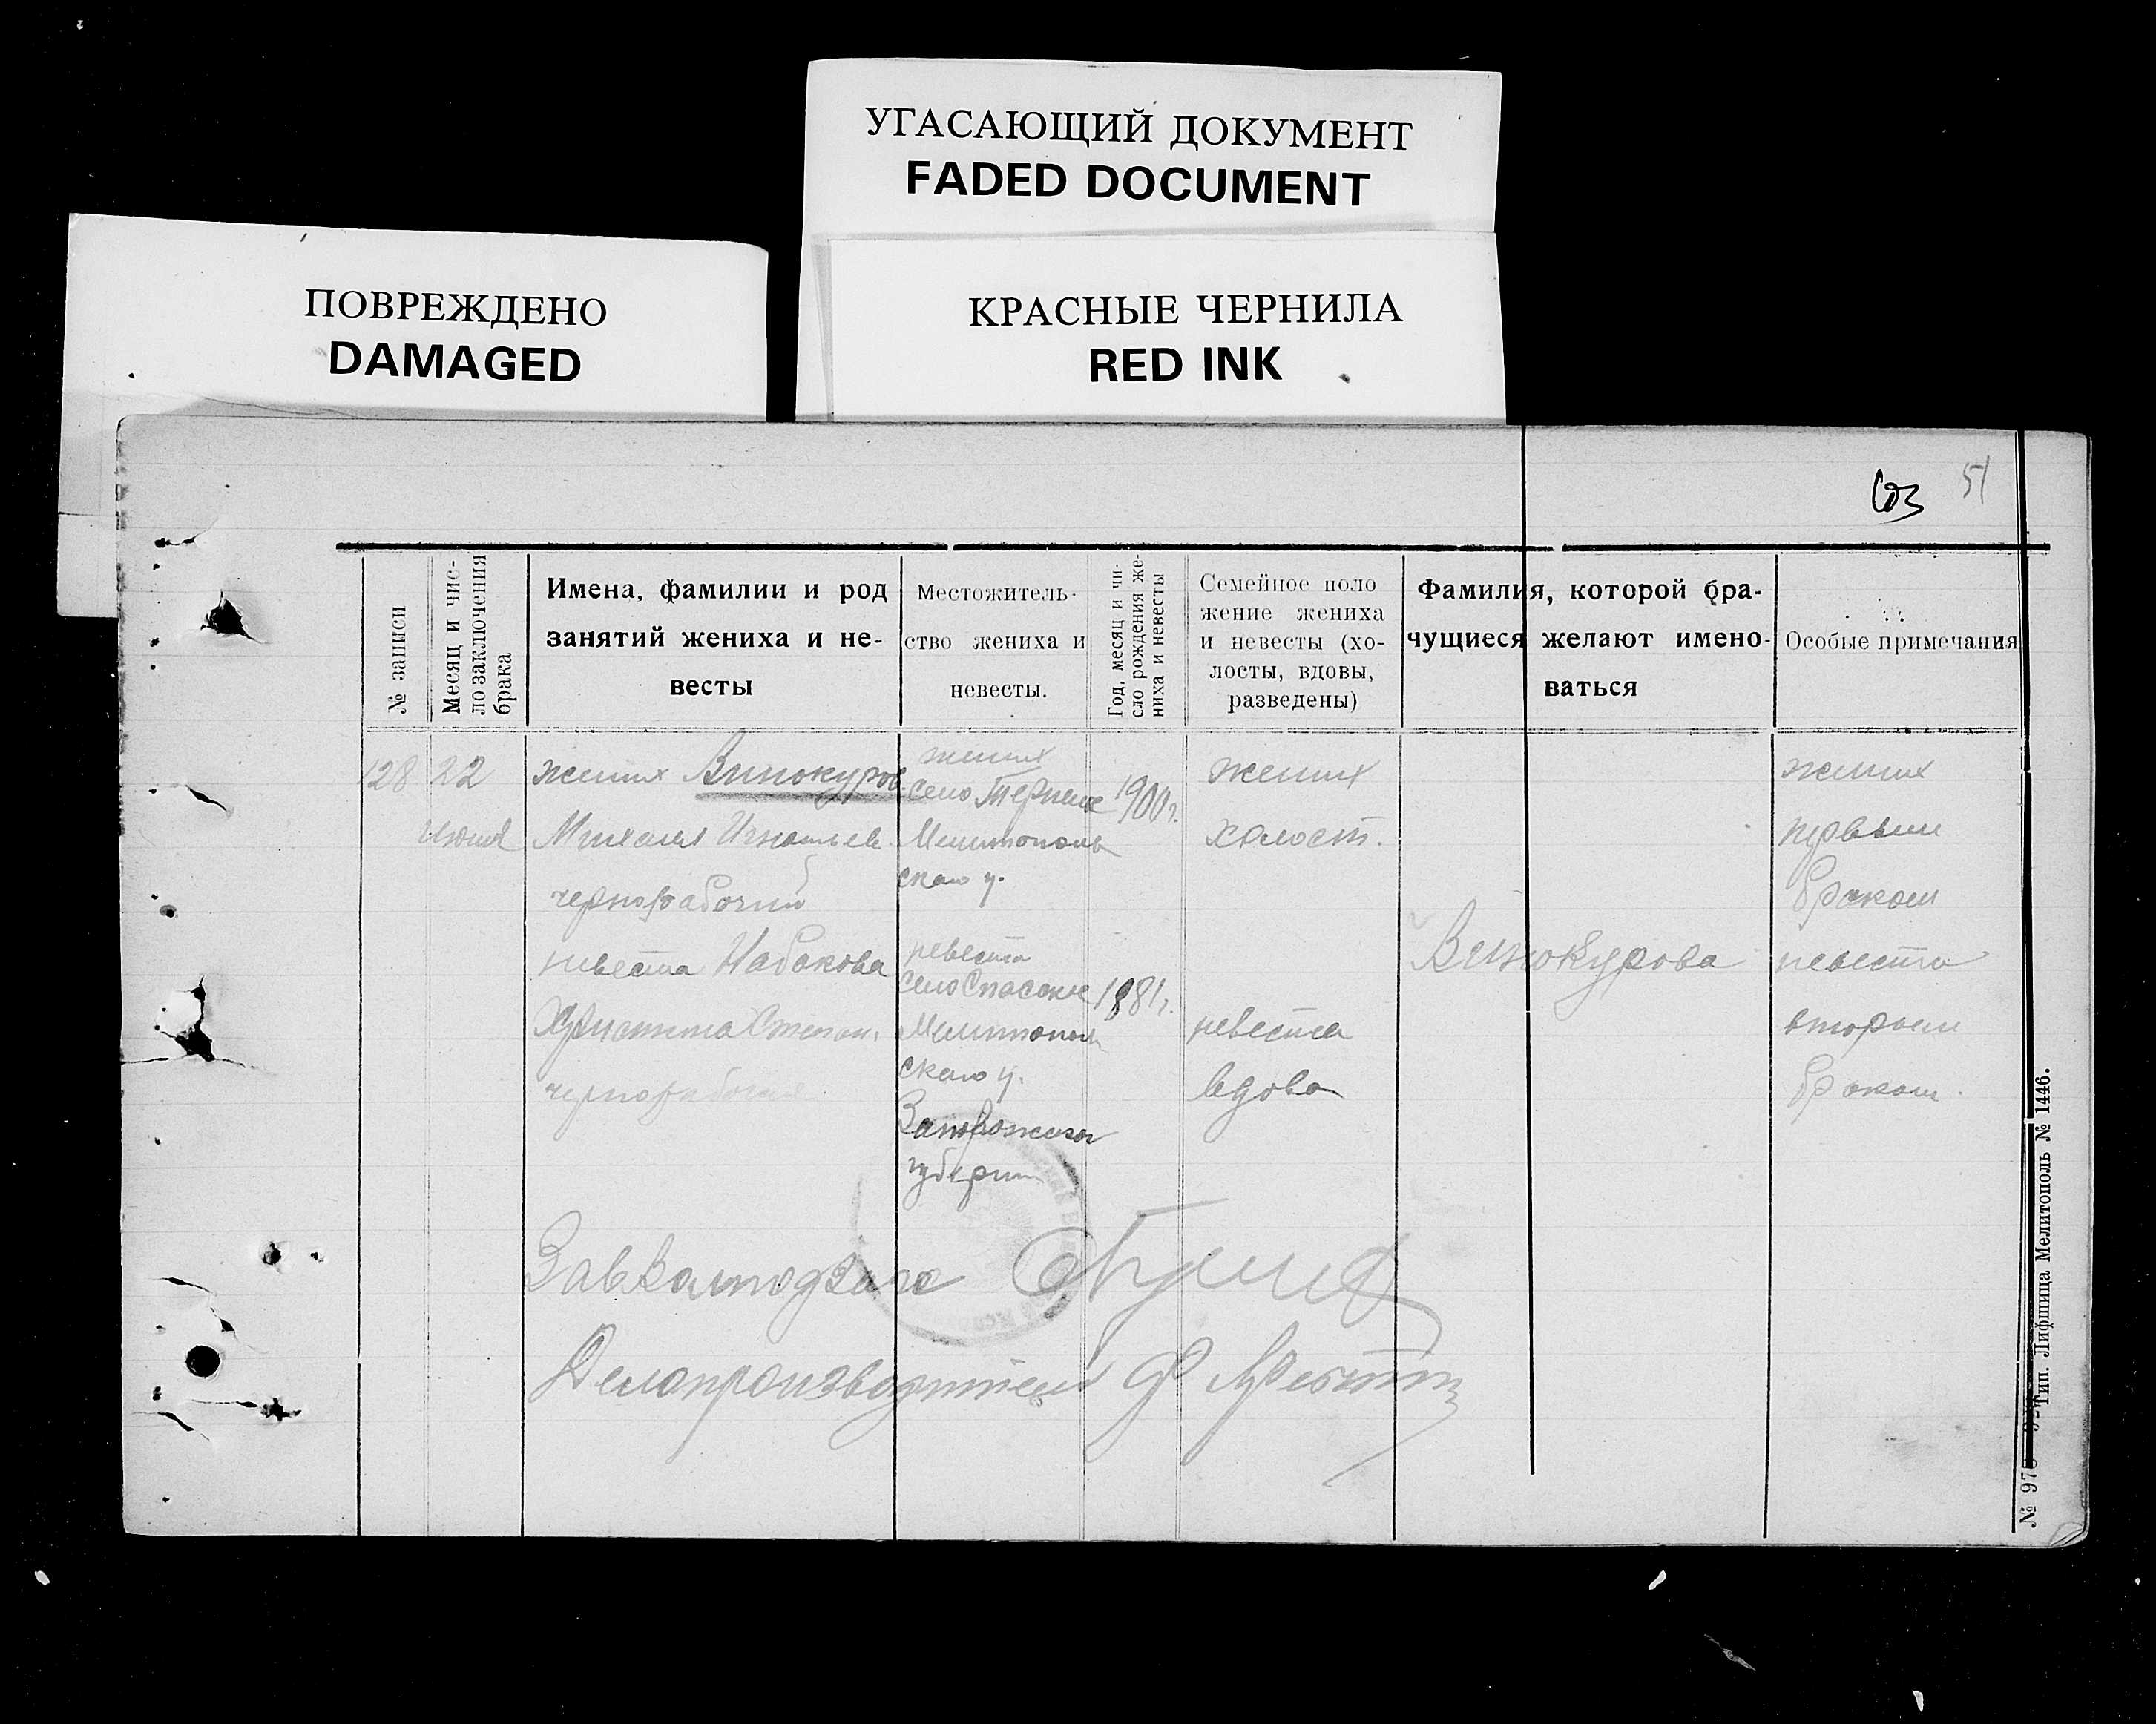 УГАСАЮЩИЙ ДОКУМЕНТ
FADED DOCUMENT
ПОВРЕЖДЕНО
DAMAGED
КРАСНЫЕ ЧЕРНИЛА
RED INK
51
№ записи
Месяц и чис-
ло заключения
брака
Имена, фамилии и род
занятий жениха и не-
весты
Местожитель-
ство жениха и
невесты.
Год, месяц и чи-
сло рождения же-
ниха и невесты
Семейное поло
жение жениха
и невесты (хо-
лосты, вдовы,
разведены)
Фамилия, которой бра-
чущиеся желают имено-
ваться
Особые примечания
128
22
жених Винокуров
Михаил Игнатьев.
чернорабочий
невеста Набокова
Христина Степан.
чернорабочая
жених
село Терпение
Мелитополь
ского у.
невеста
село Спасское
Мелитополь
ского у.
Запорожской
губернии
1900 г.
1881 г.
жених
холост.
невеста
вдова
Винокурова
жених
первым
браком
невеста
вторым
браком.
Делопроизводитель
№ 97
Тип. Лифшица Мелитополь № 1446.